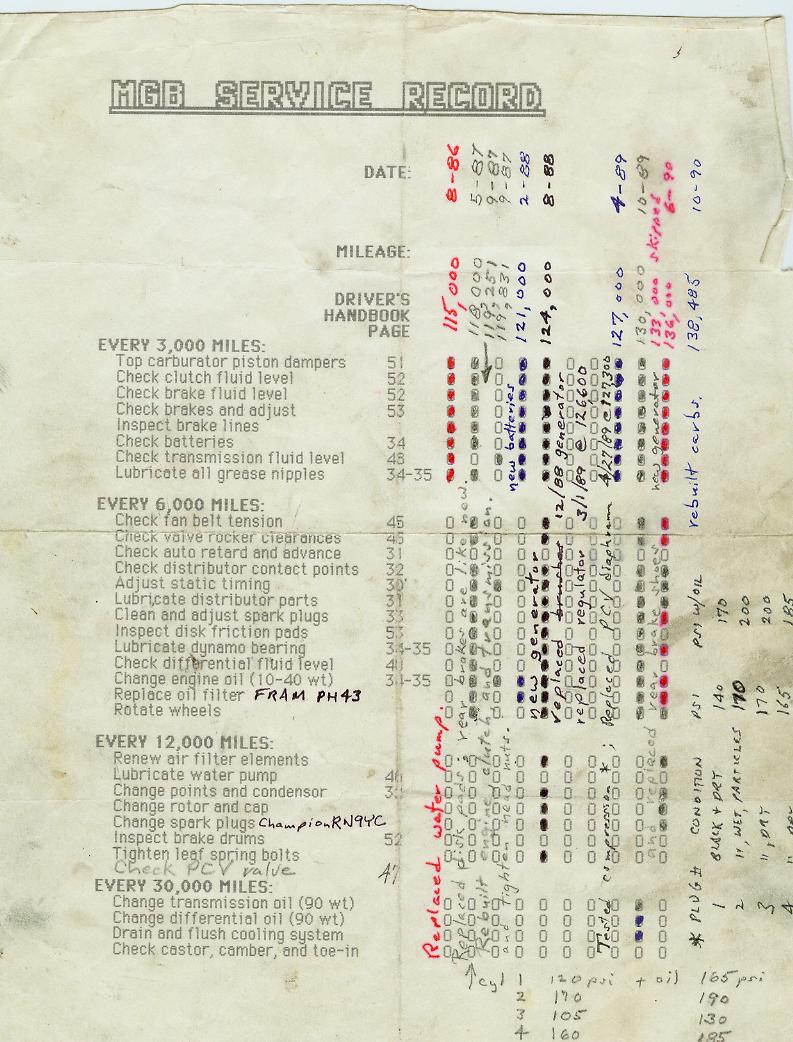 MGB SERVICE RECORD
DATE:
8-86
5-87
9-87
9-87
2-88
8-88
4-89
10-89
skipped
6-90
10-90
MILEAGE:
115,000
118,000
119,251
119,831
121,000
124,000
127,000
130,000
133,000
136,000
138,485
DRIVER'S
HANDBOOK
PAGE
EVERY 3,000 MILES:
Top carburator piston dampers 51
Check clutch fluid level 52
Check brake fluid level 52
Check brakes and adjust 53
Inspect brake lines
Check batteries 34
Check transmission fluid level 48
Lubricate all grease nipples 34-35
EVERY 6,000 MILES:
Check fan belt tension 45
Check valve rocker clearances 45
Check auto retard and advance 31
Check distributor contact points 32
Adjust static timing 30
Lubricate distributor parts 31
Clean and adjust spark plugs 33
Inspect disk friction pads 53
Lubricate dynamo bearing 34-35
Check differential fluid level
Change engine oil (10-40 wt) 34-35
Replace oil filter FRAM PH43
Rotate wheels
EVERY 12,000 MILES:
Renew air filter elements
Lubricate water pump
Change points and condensor
Change rotor and cap
Change spark plugs Champion RN9YC
Inspect brake drums 52
Tighten leaf spring bolts
Check PCV valve 47
EVERY 30,000 MILES:
Change transmission oil (90 wt)
Change differential oil (90 wt)
Drain and flush cooling system
Check castor, camber, and toe-in
Replaced water pump.
Replaced disk pads; rear brakes are like new.
Rebuilt engine, clutch and transmission.
and tighten head nuts.
new batteries
new generator
replaced 12/88 generator
replaced regulator 3/1/89 @ 126600
Tested compression *; Replaced PCV diaphram 4/27/89 @ 127,300
and replaced rear brake shoes
new generator
rebuilt carbs.
* PLUG # CONDITION PSI PSI W/OIL
1 BLACK + DRY 140 170
2 ", WET, PARTICLES 170 200
3 ", DRY 170 200
4 " DRY 165 185
cyl 1 120 psi + oil 165 psi
2 170 190
3 105 130
4 160 185